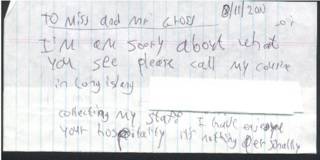 8/11/200
To Miss and Mr Gross
I'm am sorry about what
you see please call my cousin
in Long Island
collecting my staff I have enjoyed
your hospitality it's nothing personally